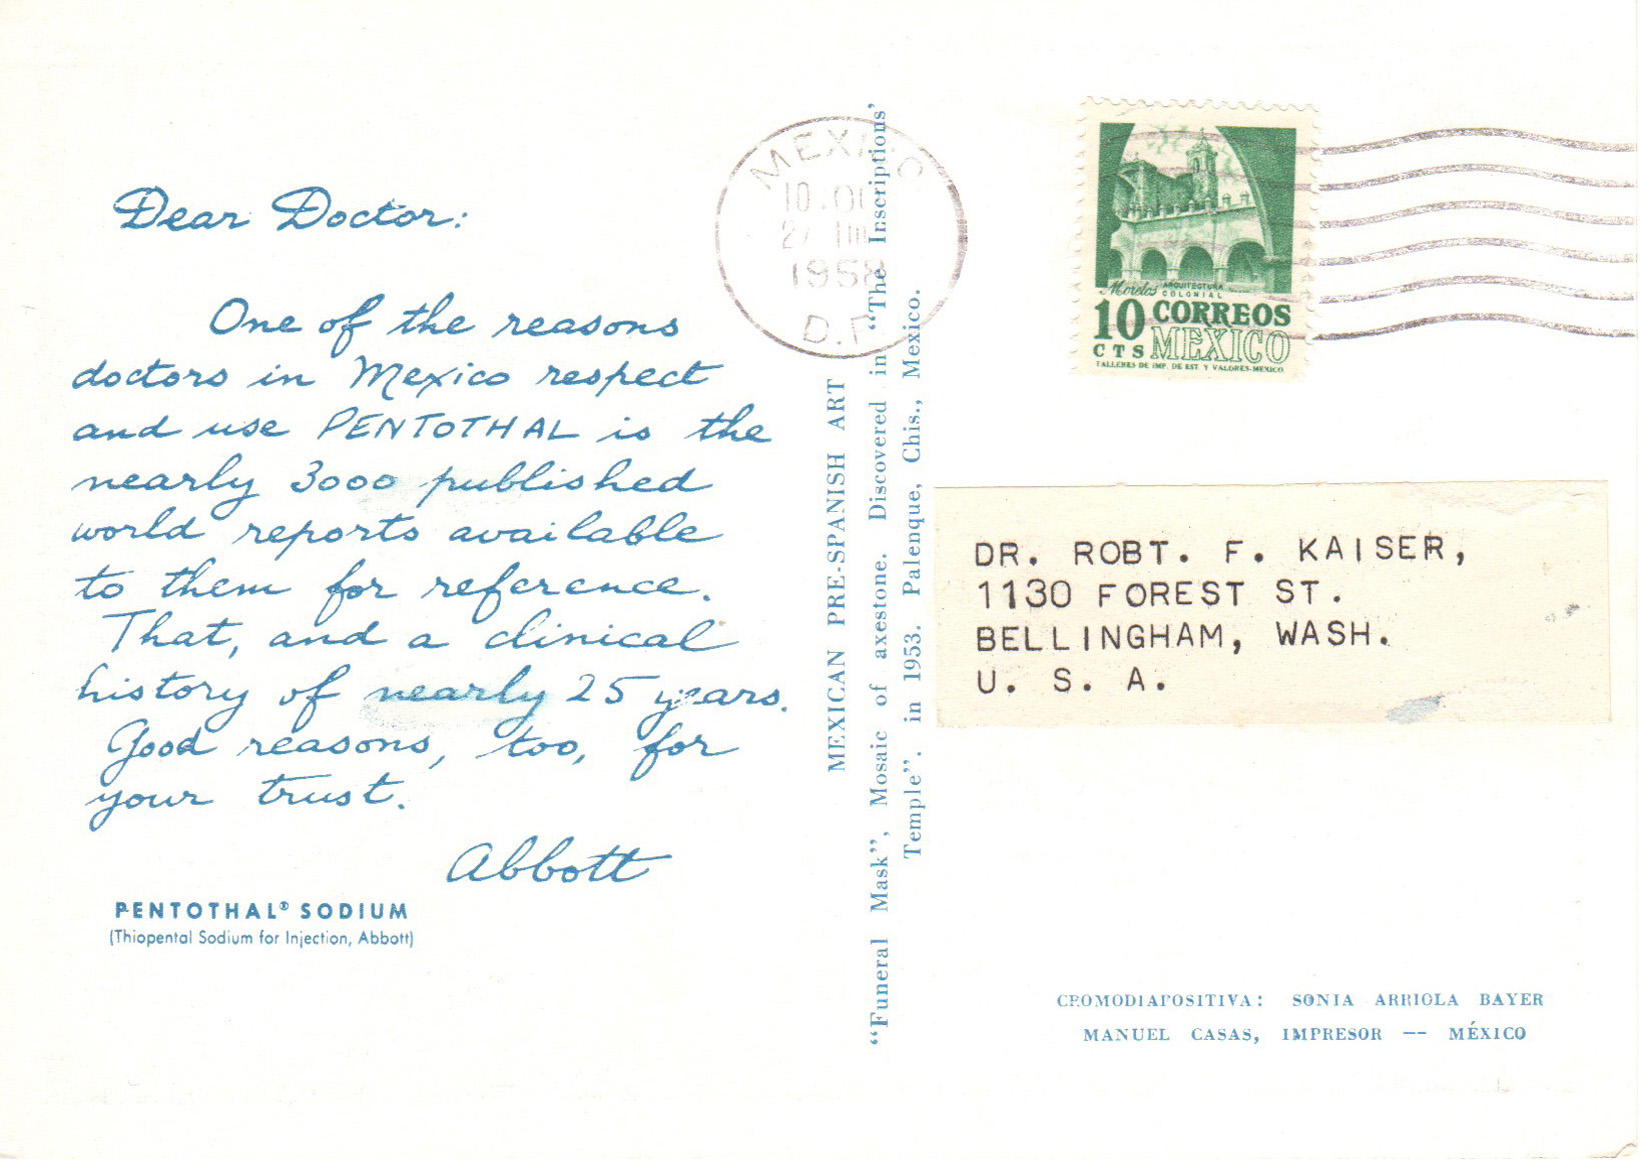 Dear Doctor:
One of the reasons
doctors in Mexico respect
and use PENTOTHAL is the
nearly 3000 published
world reports available
to them for reference.
That, and a clinical
history of nearly 25 years.
Good reasons, too, for
your trust.
Abbott
PENTOTHAL® SODIUM
(Thiopental Sodium for Injection, Abbott)
MEXICAN PRE-SPANISH ART
“Funeral Mask”, Mosaic of axestone. Discovered in “The Inscriptions’
Temple”. in 1953. Palenque, Chis., Mexico.
MEXICO
1958
D.F.
Morelos ARQUITECTURA
COLONIAL
10 CORREOS
CTS MEXICO
TALLERES DE IMP. DE EST. Y VALORES-MEXICO
DR. ROBT. F. KAISER,
1130 FOREST ST.
BELLINGHAM, WASH.
U. S. A.
CROMODIAPOSITIVA: SONIA ARRIOLA BAYER
MANUEL CASAS, IMPRESOR -- MÉXICO